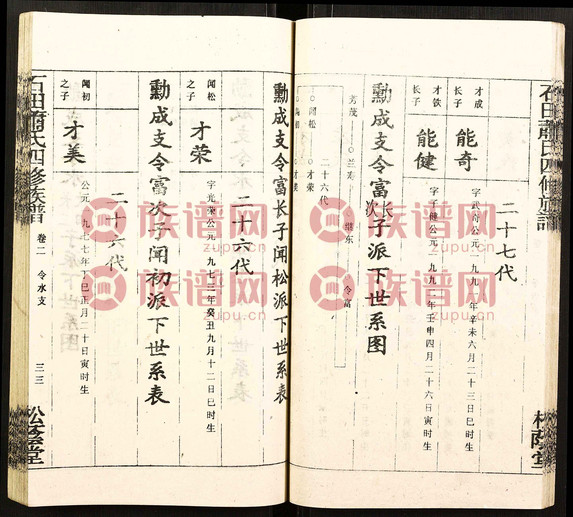 石田萧氏四修族谱
松荫堂
二十七代
才成
长子
能奇
字武奇公元一九九一年辛未六月二十三日巳时生
才钦
长子
能健
字子健公元一九九二年壬申四月二十六日寅时生
勳成支令富长次子派下世系图
二十六代
令富
继东
兰寿
芳茂
○闻松
○才荣
勳成支令富长子闻松派下世系表
二十六代
闻松
之子
才荣
字光荣公元一九七三年癸丑九月十二日巳时生
勳成支令富次子闻初派下世系表
二十六代
闻初
之子
才美
公元一九七七年丁巳正月二十日寅时生
石田萧氏四修族谱
卷二
令水支
三三
松荫堂
族谱网
zupu.cn